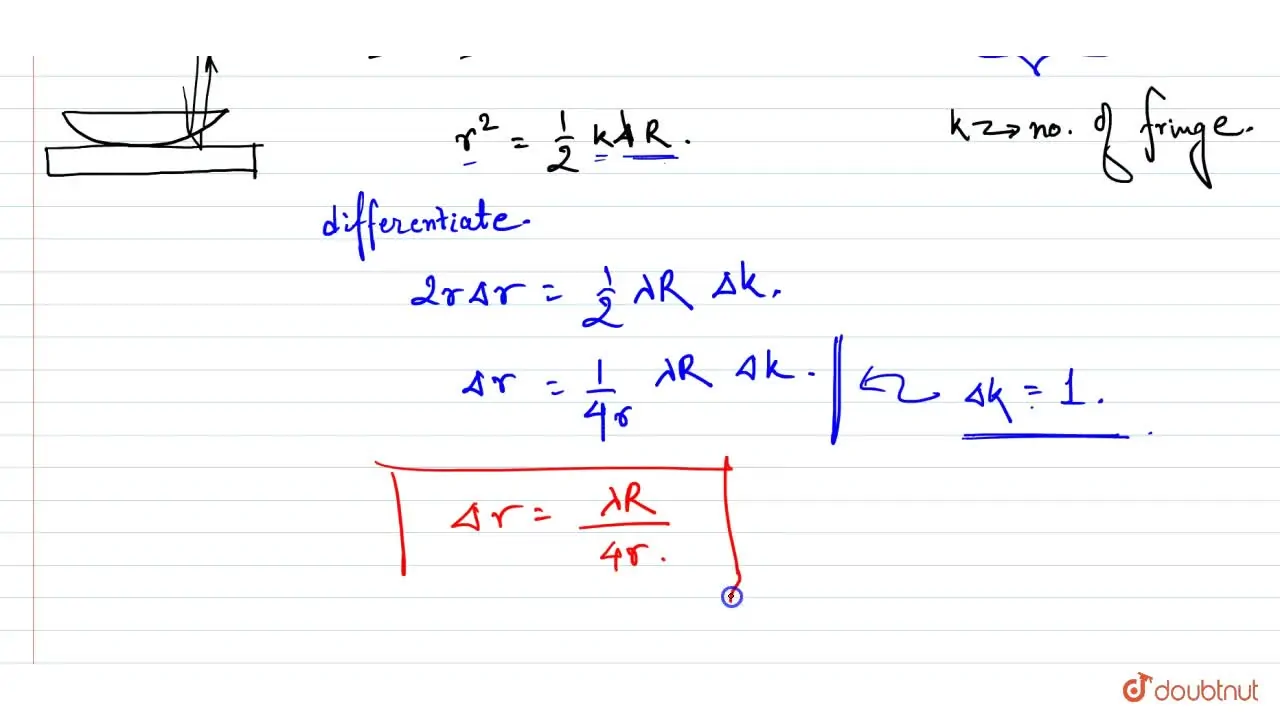 r² = 1/2 kλR.
k → no. of fringe.
differentiate.
2rΔr = 1/2 λR Δk.
Δr = 1/4r λR Δk.
Δk = 1.
Δr = λR/4r.
doubtnut